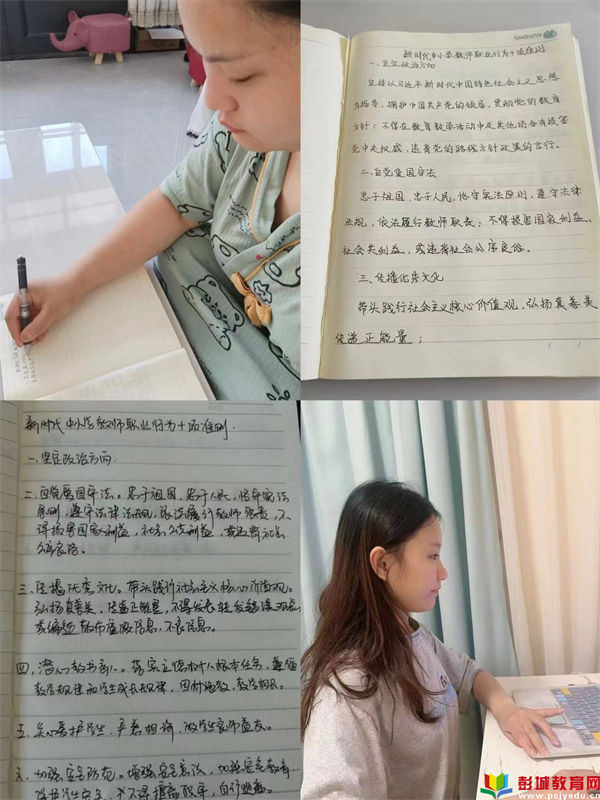 GUSONG
新时代中小学教师职业行为十项准则
一、坚定政治方向
坚持以习近平新时代中国特色社会主义思想
为指导，拥护中国共产党的领导，贯彻党的教育
方针；不得在教育教学活动中及其他场合有损害
党中央权威、违背党的路线方针政策的言行。
二、自觉爱国守法
忠于祖国，忠于人民，恪守宪法原则，遵守法律
法规，依法履行教师职责；不得损害国家利益、
社会公共利益，或违背社会公序良俗。
三、传播优秀文化
带头践行社会主义核心价值观，弘扬真善美
传递正能量；
新时代中小学教师职业行为十项准则.
一、坚定政治方向.
二、自觉爱国守法。忠于祖国，忠于人民，恪守宪法
原则，遵守法律法规，依法履行教师职责，不
得损害国家利益，社会公共利益，或违背社会
公序良俗。
三、传播优秀文化。带头践行社会主义核心价值观。
弘扬真善美，传递正能量，不得发表转发错误观点
或编造散布虚假信息，不良信息。
四，潜心教书育人。落实立德树人根本任务，遵循
教育规律和学生成长规律，因材施教，教学相长。
五、关心爱护学生，严慈相济，做学生良师益友。
六、加强安全防范。增强安全意识，加强安全教育
保护学生安全，
彭城教育网
www.pcjyedu.cn